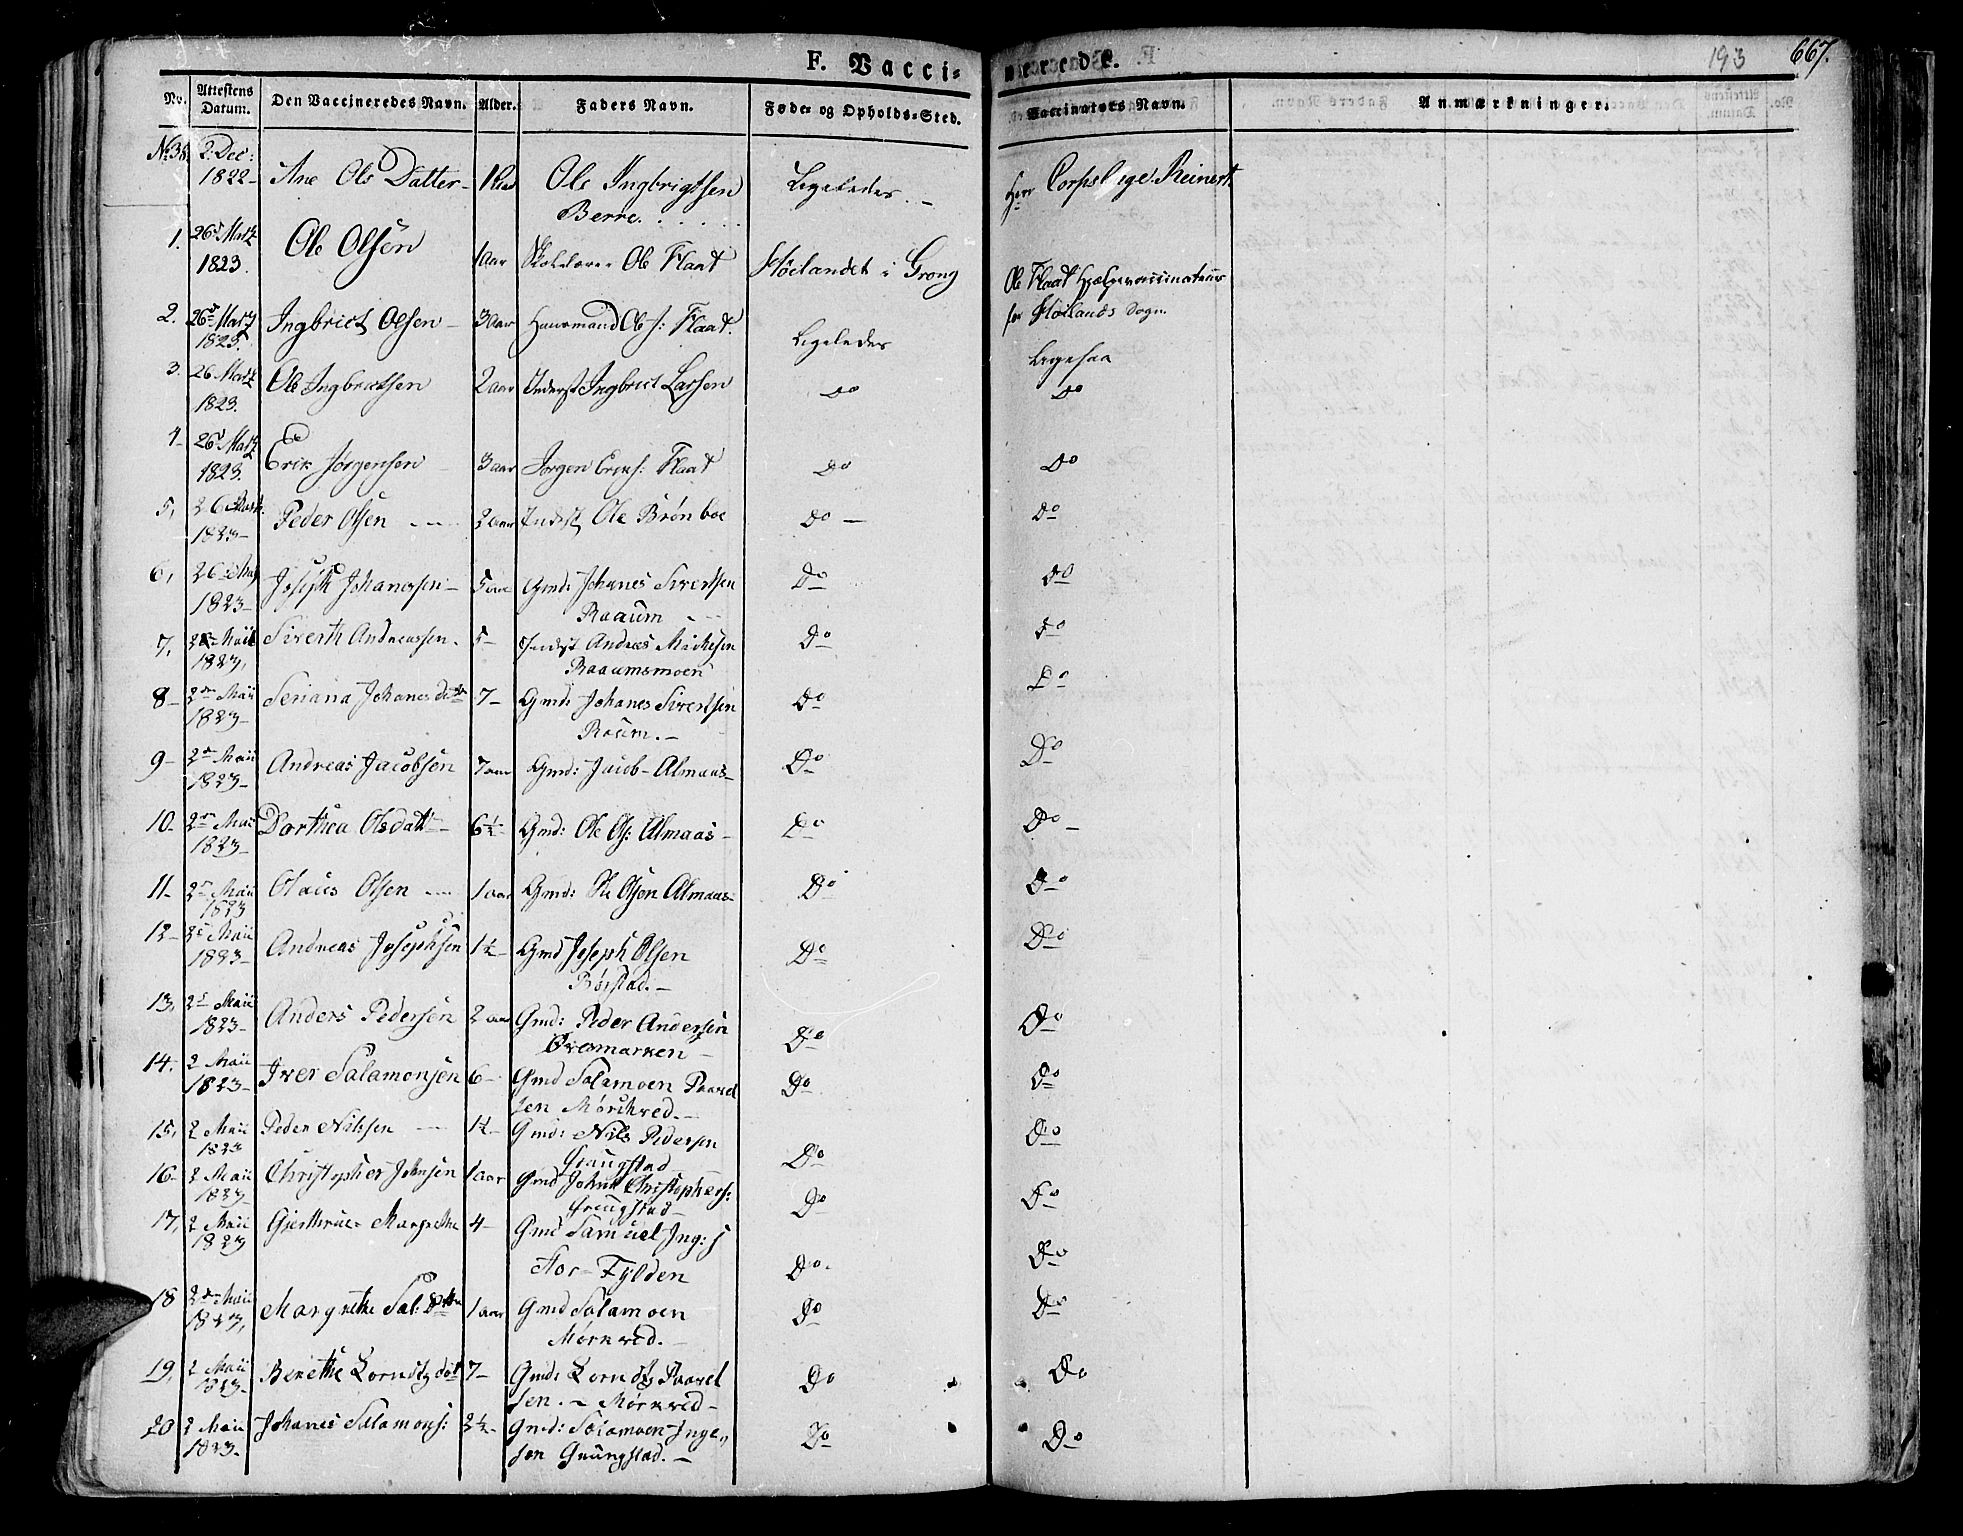 F. Vacci- nerede.
193 667.
No. Attestens Datum. Den Vaccineredes Navn. Alder. Faders Navn. Føde- og Opholds-Sted. Vaccinators Navn. Anmærkninger.
No 38. 2. Dec: 1822 - Ane Ols Datter - 1 Ole Ingbrigtsen Berre Ligeledes - Herr Corpslæge Reinert
1. 26 Martz 1823. Ole Olsen 1 aar Skolelærer Ole Flaat Høilandet i Grong Ole Flaat Hjælpevaccinateur for Høilands Sogn.
2. 26 Martz 1823. Ingbrict Olsen - 3 aar Huusmand Ole J: Flaat. Ligeledes Ligesaa
3. 26 Martz 1823. Ole Ingbrictsen 2 aar Inderst Ingbrict Larsen Do Do
4 - 26 Martz 1823. Erik Jørgensen 3 aar Jørgen Erics: Flaat Do Do
5, 26 Mart. 1823 - Peder Olsen 2 aar Inderst Ole Brønboe Do - Do
6, 26 1823 - Joseph Johanessen - 5 aar Gmd: Johanes Sivertsen Raaum Do Do
7, 2 Maii 1823, Siverth Andreassen. 5 - Inderst Andreas Mickelsen Raaumsmoen Do Do
8 - 2den Maii 1823 - Seriana Johanesdatter 7 - Gmd: Johanes Sivertsen Raum. - Do Do
9 - 2den Maii 1823 - Andreas Jacobsen 7 aar Gmd: Jacob Almaas - Do Do
10. 2den Maii 1823 - Dorthea Olsdatt - 6½ - Gmd: Ole Ols: Almaas - Do Do -
11 - 2den Maii 1823 Olaus Olsen 1 aar Gmd: Ole Olsen Almaas - Do Do
12 - 2d Maii 1823 - Andreas Josephsen 1½ - Gmd Joseph Olsen Rørstad. - Do Do
13, 2d Maii 1823 - Anders Pedersen 2 aar Gmd: Peder Andersen Øvermarken - Do Do
14, 2 Maii 1823 - Iver Salamonsen 6 - Gmd Salamoen Paavelsen Mørchved. - Do Do
15, 2 Maii 1823 Peder Nilssen 1½ - Gmd: Nils Pedersen Graugstad Do Do
16 - 2 Maii 1823 Christopher Johnsen 1 aar Gmd John Christophers: Do Do
17, 2 Maii 1823 Gjerthrue Margrethe 4 - Gmd Samuel Ing: Stor-Fylden Do. Do
18 2den Maii 1823, Margrethe Sal: Dtter 1 aar Gmd Salamoen Mørkved. - Do Do
19, 2 Maii 1823 - Berethe Lorndtzdat 7 - Gmd: Lorndtz Paavelsen. - Mørkved - Do Do
20 2 Maii 1823 - Johanes Salamons: 2½ - Gmd: Salamoen Ingesen Do Do